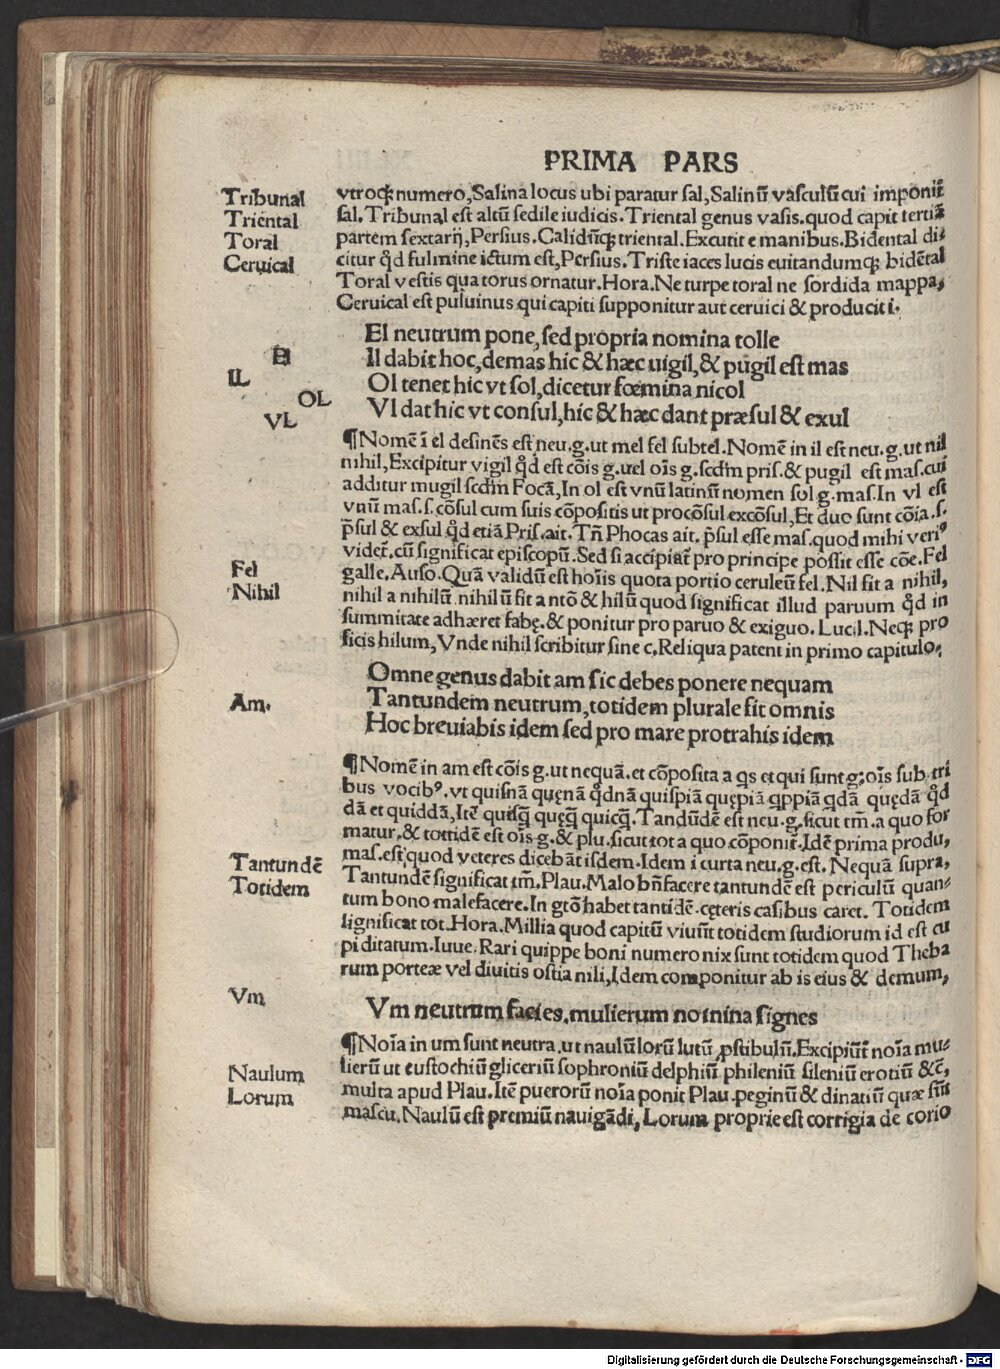 PRIMA PARS
Tribunal
Triental
Toral
Ceruical
vtroqꝫ numero, Salina locus ubi paratur sal, Salinū vasculū cui imponit̄
sal. Tribunal est altū sedile iudicis. Triental genus vasis. quod capit tertiā
partem sextarij, Persius. Calidūqꝫ triental. Excutit e manibus. Bidental di⸗
citur qd̄ fulmine ictum est, Persius. Triste iaces lucis euitandumqꝫ bidētal
Toral vestis qua torus ornatur. Hora. Ne turpe toral ne sordida mappa,
Ceruical est puluinus qui capiti supponitur aut ceruici & producit i.
El
IL
OL
VL
El neutrum pone, sed propria nomina tolle
Il dabit hoc, demas hic & hæc uigil, & pugil est mas
Ol tenet hic vt sol, dicetur fœmina nicol
Vl dat hic vt consul, hic & hæc dant præsul & exul
¶Nomē ī el desinēs est neu. g. ut mel fel subtel. Nomē in il est neu. g. ut nil
nihil, Excipitur vigil qd̄ est cōis g. uel oīs g. scdm̄ pris. & pugil est mas. cui
additur mugil scdm̄ Focā, In ol est vnū latinū nomen sol g. mas. In vl est
vnū mas. s. cōsul cum suis cōpositis ut procōsul excōsul, Et duo sunt cōia. s.
p̄sul & exsul qd̄ etiā Pris. ait. Tn̄ Phocas ait. p̄sul esse mas. quod mihi veriꝰ
videt̄. cū significat episcopū. Sed si accipiat̄ pro principe possit esse cōe. Fel
Fel
Nihil
galle. Auso. Quā validū est hoīis quota portio ceruleū fel. Nil fit a nihil,
nihil a nihilū. nihilū fit a ntō & hilū quod significat illud paruum qd̄ in
summitate adhæret fabę. & ponitur pro paruo & exiguo. Lucil. Neqꝫ pro
ficis hilum, Vnde nihil scribitur sine c, Reliqua patent in primo capitulo.
Am.
Omne genus dabit am sic debes ponere nequam
Tantundem neutrum, totidem plurale fit omnis
Hoc breuiabis idem sed pro mare protrahis idem
¶Nomē in am est cōis g. ut nequā. et cōposita a qs et qui sunt g; oīs sub tri
bus vocibꝰ. vt quisnā quęnā qd̄nā quispiā quępiā qppiā qdā quędā qd̄
dā et quiddā, Itē quisq̄ quęq̄ quicq̄. Tandūdē est neu. g. sicut tm̄. a quo for
matur. & tottidē est oīs g. & plu. sicut tot a quo cōponit̄. Idē prima produ,
mas. est quod veteres dicebāt isdem. Idem i curta neu. g. est. Nequā supra,
Tantundē
Totidem
Tantundē significat tm̄. Plau. Malo bn̄facere tantundē est periculū quan⸗
tum bono malefacere. In gtō habet tantidē. cęteris casibus caret. Totidem
significat tot. Hora. Millia quod capitū viuūt totidem studiorum id est cu
piditatum. Iuue. Rari quippe boni numero nix sunt totidem quod Theba
rum porteæ vel diuitis ostia nili, Idem componitur ab is eius & demum,
Vm
Vm neutrum facies. mulierum nomina signes
¶Noīa in um sunt neutra. ut naulū lorū lutū ꝓstibulū. Excipiūt̄ noīa mu⸗
Naulum
Lorum
lierū ut eustochiū gliceriū sophroniū delphiū pheleniū sileniū erotiū &c̄,
multa apud Plau. Itē puerorū noīa ponit Plau. peginū & dinatiū quæ sūt
mascu. Naulū est premiū nauigādi, Lorum proprie est corrigia de corio
Digitalisierung gefördert durch die Deutsche Forschungsgemeinschaft - DFG